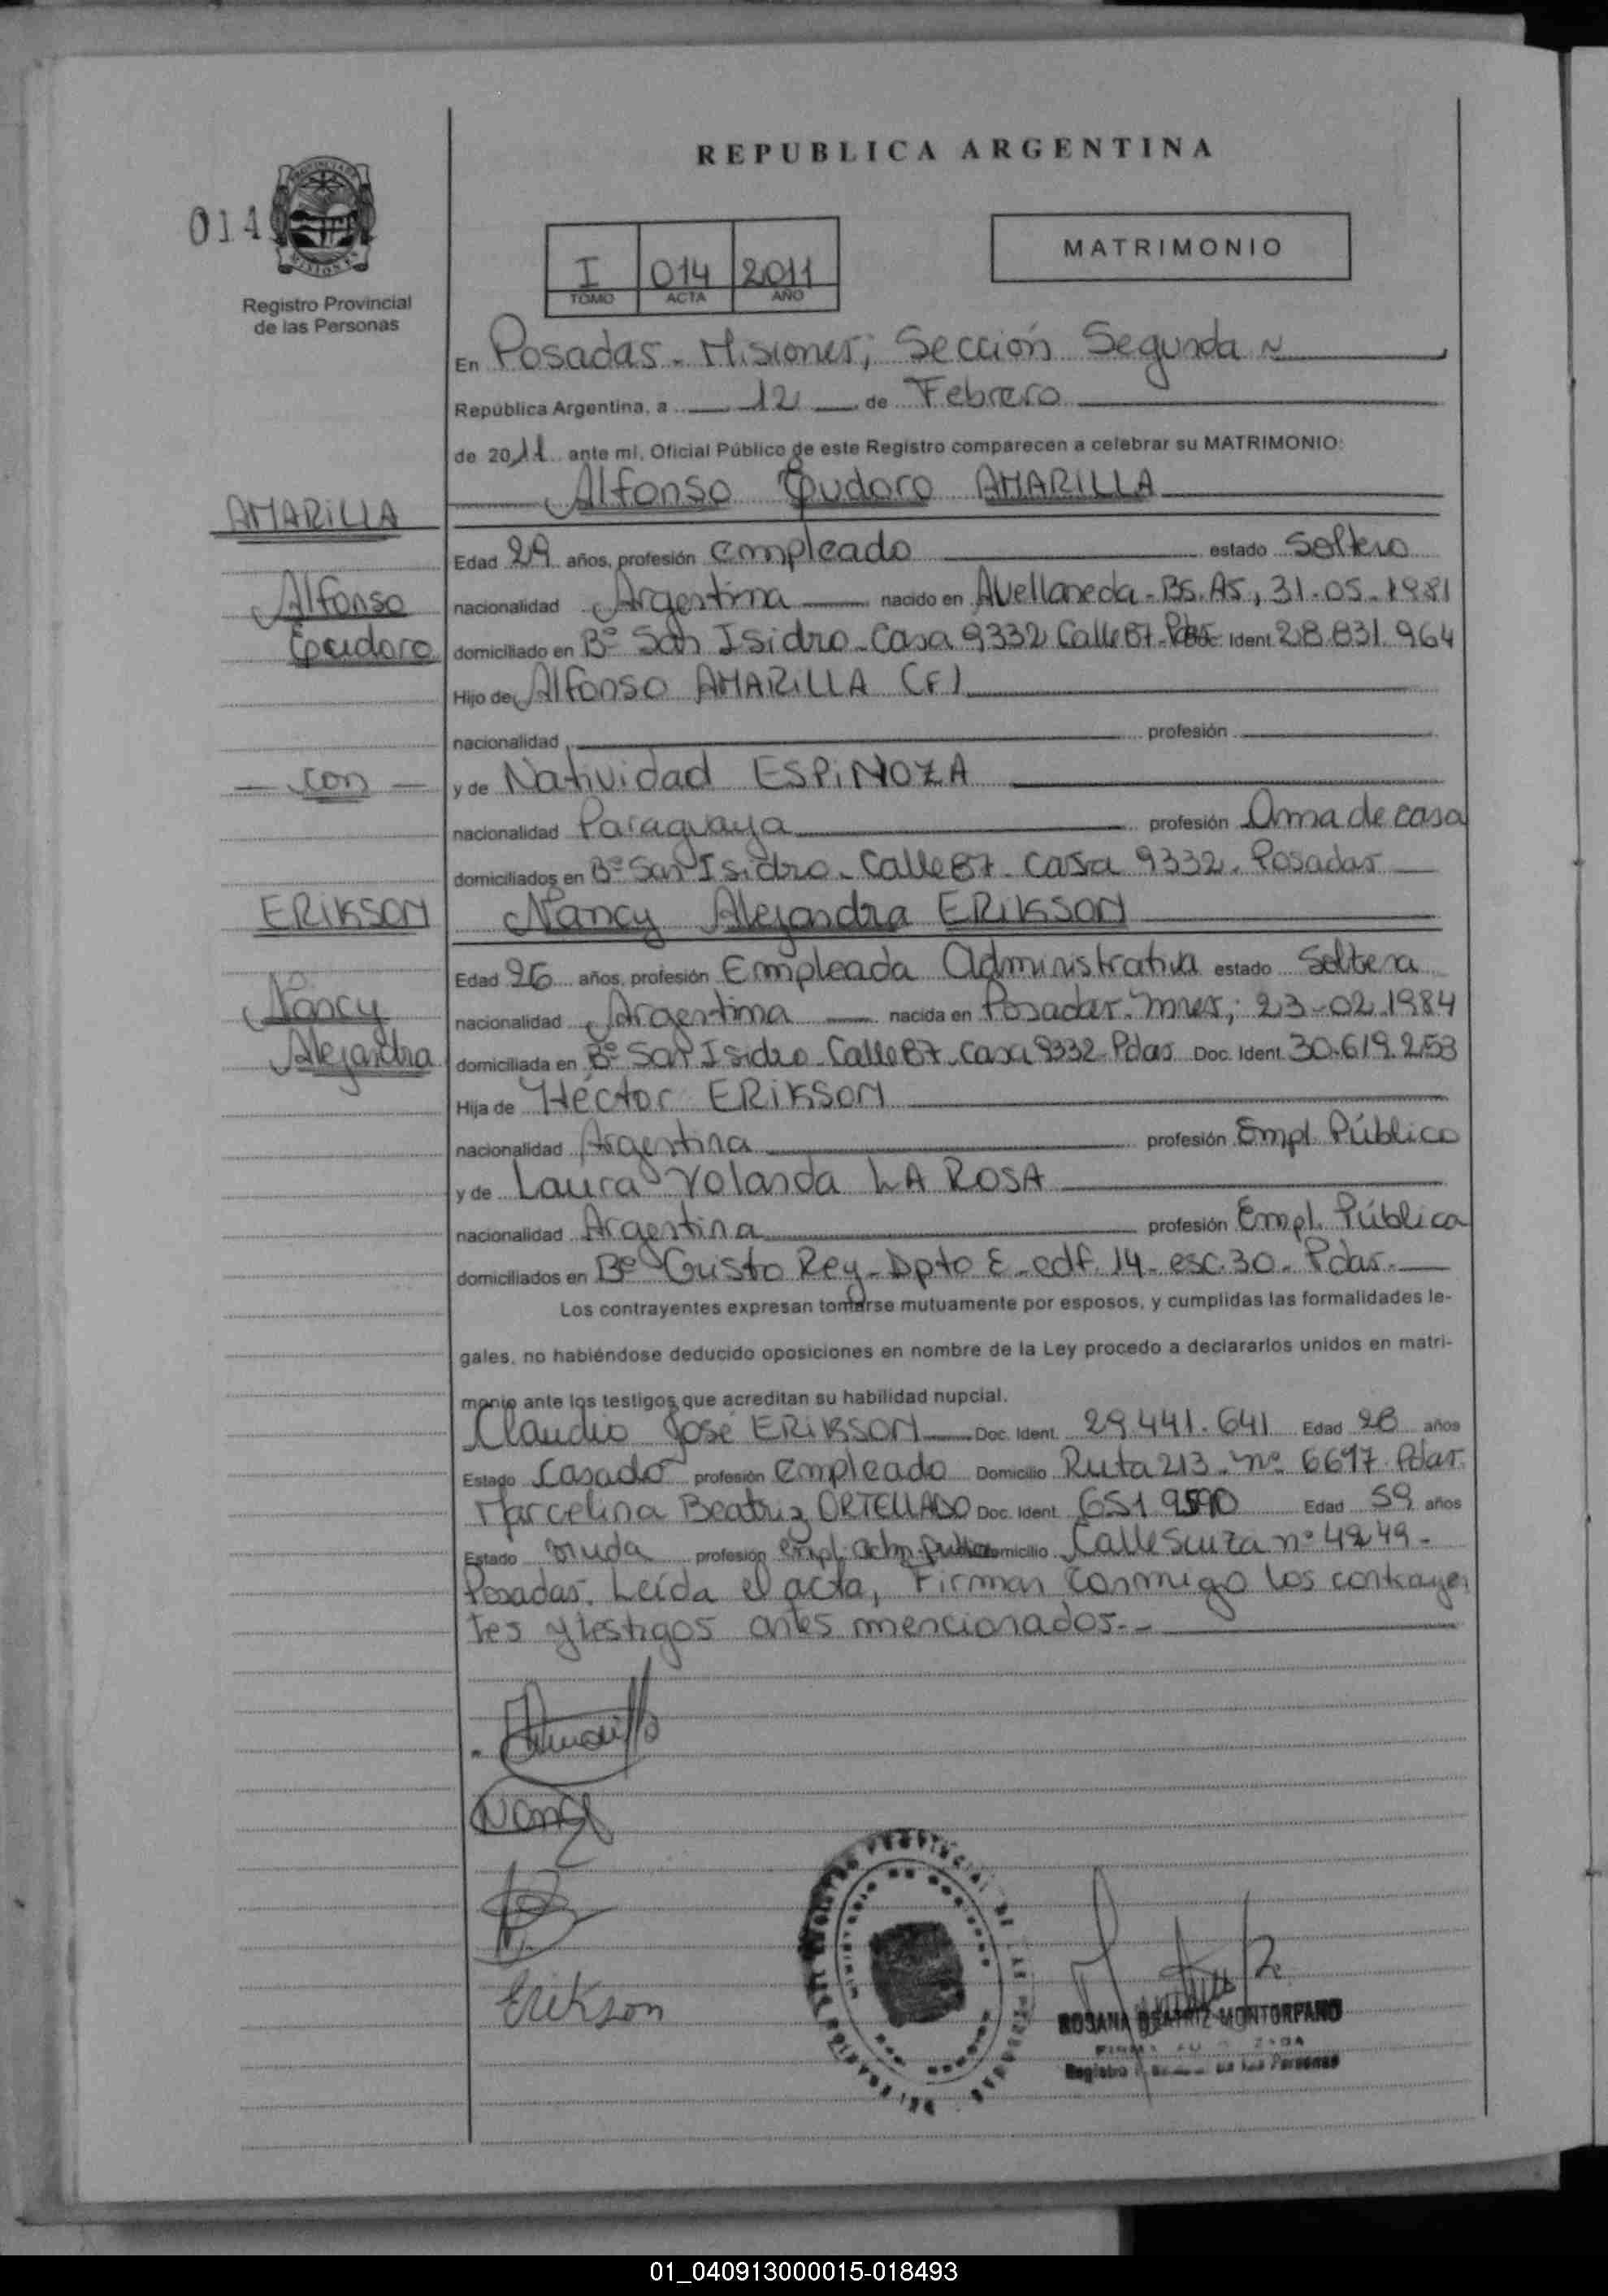 REPUBLICA ARGENTINA
014
Registro Provincial
de las Personas
I 014 2011
TOMO ACTA AÑO
MATRIMONIO
En Posadas - Misiones; Sección Segunda
República Argentina, a 12 de Febrero
de 2011 ante mi, Oficial Público de este Registro comparecen a celebrar su MATRIMONIO:
Alfonso Eudoro AMARILLA
AMARILLA
Edad 29 años, profesión empleado estado Soltero
Alfonso
nacionalidad Argentina nacido en Avellaneda - Bs. As, 31-05-1981
Eudoro
domiciliado en Bº San Isidro - Casa 9332 Calle 87 - Pdas Doc. Ident. 28.831.964
Hijo de Alfonso AMARILLA (F)
nacionalidad profesión
con
y de Natividad ESPINOZA
nacionalidad Paraguaya profesión Ama de casa
domiciliados en Bº San Isidro - Calle 87 - Casa 9332 - Posadas
ERIKSON
Nancy Alejandra ERIKSON
Edad 26 años, profesión Empleada Administrativa estado Soltera
Nancy
nacionalidad Argentina nacida en Posadas - Mnes; 23-02-1984
Alejandra
domiciliada en Bº San Isidro - Calle 87 - Casa 9332 - Pdas Doc. Ident. 30.619.253
Hija de Héctor ERIKSON
nacionalidad Argentina profesión Empl. Público
y de Laura Yolanda LA ROSA
nacionalidad Argentina profesión Empl. Pública
domiciliados en Bº Cristo Rey - Dpto E - edf. 14 - esc. 30 - Pdas.
Los contrayentes expresan tomarse mutuamente por esposos, y cumplidas las formalidades le-
gales, no habiéndose deducido oposiciones en nombre de la Ley procedo a declararlos unidos en matri-
monio ante los testigos que acreditan su habilidad nupcial.
Claudio José ERIKSON Doc. Ident. 29.441.641 Edad 28 años
Estado Casado profesión empleado Domicilio Ruta 213 - nº 6697 - Pdas.
Marcelina Beatriz ORTELLADO Doc. Ident. Edad 59 años
Estado viuda profesión empl. adm. Domicilio Calle Suiza nº 4249 -
Posadas. Leída el acta, Firman conmigo los contrayen
tes y testigos antes mencionados.-
Amarilla
Nancy
Erikson
ROSANA BEATRIZ MONTORFANO
Registro de las Personas
01_040913000015-018493